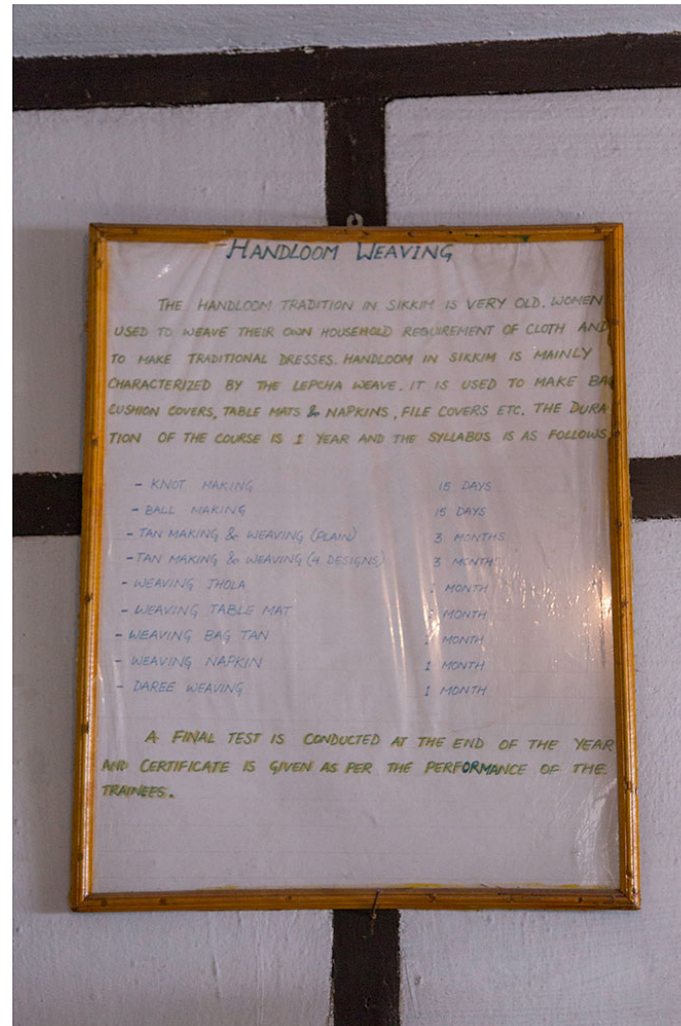 HANDLOOM WEAVING
THE HANDLOOM TRADITION IN SIKKIM IS VERY OLD. WOMEN
USED TO WEAVE THEIR OWN HOUSEHOLD REQUIREMENT OF CLOTH AND
TO MAKE TRADITIONAL DRESSES. HANDLOOM IN SIKKIM IS MAINLY
CHARACTERIZED BY THE LEPCHA WEAVE. IT IS USED TO MAKE
CUSHION COVERS, TABLE MATS & NAPKINS, FILE COVERS ETC. THE DURA
TION OF THE COURSE IS 1 YEAR AND THE SYLLABUS IS AS FOLLOWS
- KNOT MAKING 15 DAYS
- BALL MAKING 15 DAYS
- TAN MAKING & WEAVING (PLAIN) 3 MONTHS
- TAN MAKING & WEAVING (4 DESIGNS) 3 MONTHS
- WEAVING JHOLA MONTH
- WEAVING TABLE MAT MONTH
- WEAVING BAG TAN 1 MONTH
- WEAVING NAPKIN 1 MONTH
- DAREE WEAVING 1 MONTH
A FINAL TEST IS CONDUCTED AT THE END OF THE YEAR
AND CERTIFICATE IS GIVEN AS PER THE PERFORMANCE OF THE
TRAINEES.